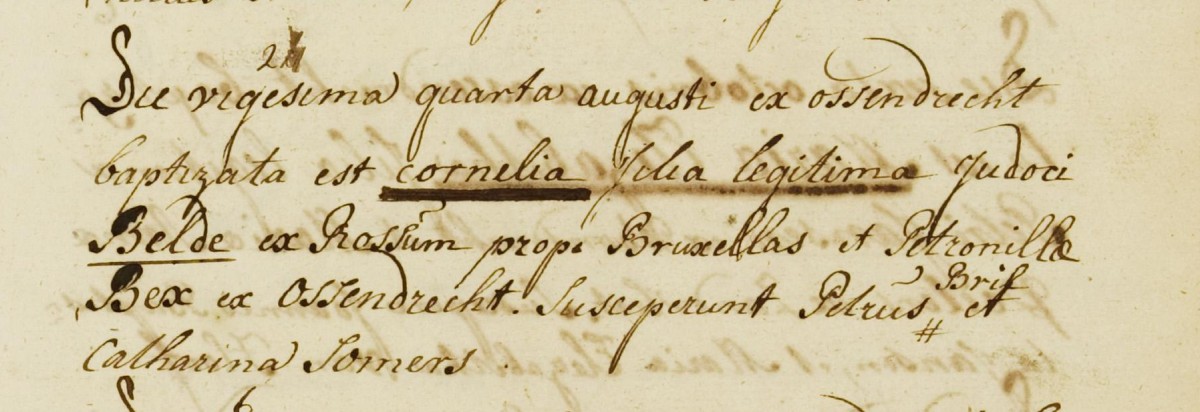 24
Die vigesima quarta augusti ex ossendrecht
baptizata est cornelia filia legitima Judoci
Belde ex Rossum prope Bruxellas et Petronilla
Bex ex Ossendrecht. Susceperunt Petrus # Brif et
Catharina Somers